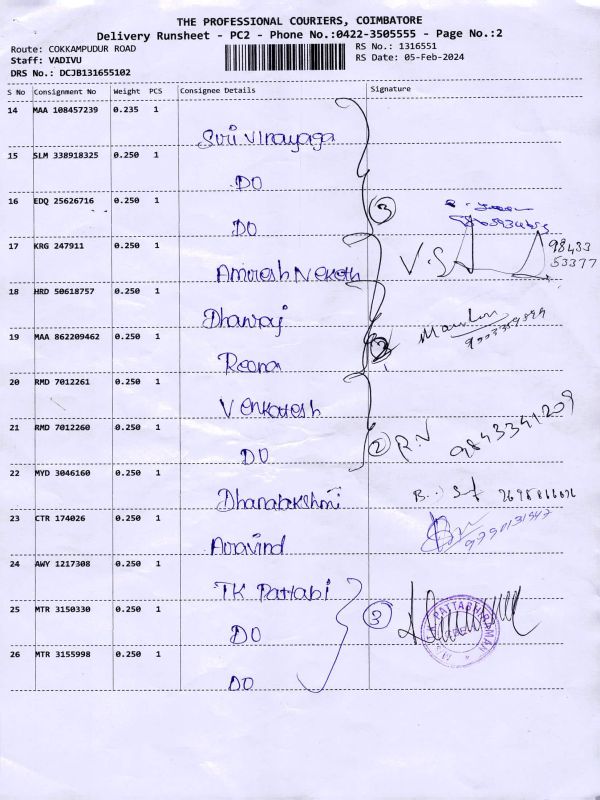 THE PROFESSIONAL COURIERS, COIMBATORE
Delivery Runsheet - PC2 - Phone No.:0422-3505555 - Page No.:2
Route: COKKAMPUDUR ROAD
RS No.: 1316551
Staff: VADIVU
RS Date: 05-Feb-2024
DRS No.: DCJB131655102
S No Consignment No Weight PCS Consignee Details Signature
14 MAA 108457239 0.235 1
Sriri Vinayaga
15 SLM 338918325 0.250 1
DO
16 EDQ 25626716 0.250 1
DO
3
17 KRG 247911 0.250 1
V.S
98433
53377
18 HRD 50618757 0.250 1
Dhanraj
19 MAA 862209462 0.250 1
Reena
20 RMD 7012261 0.250 1
Venkatesh
21 RMD 7012260 0.250 1
DO
2 R.V 9843341209
22 MYD 3046160 0.250 1
Dhanalakshmi
23 CTR 174026 0.250 1
Aravind
24 AWY 1217308 0.250 1
TK Pattabi
25 MTR 3150330 0.250 1
DO
3
26 MTR 3155998 0.250 1
DO